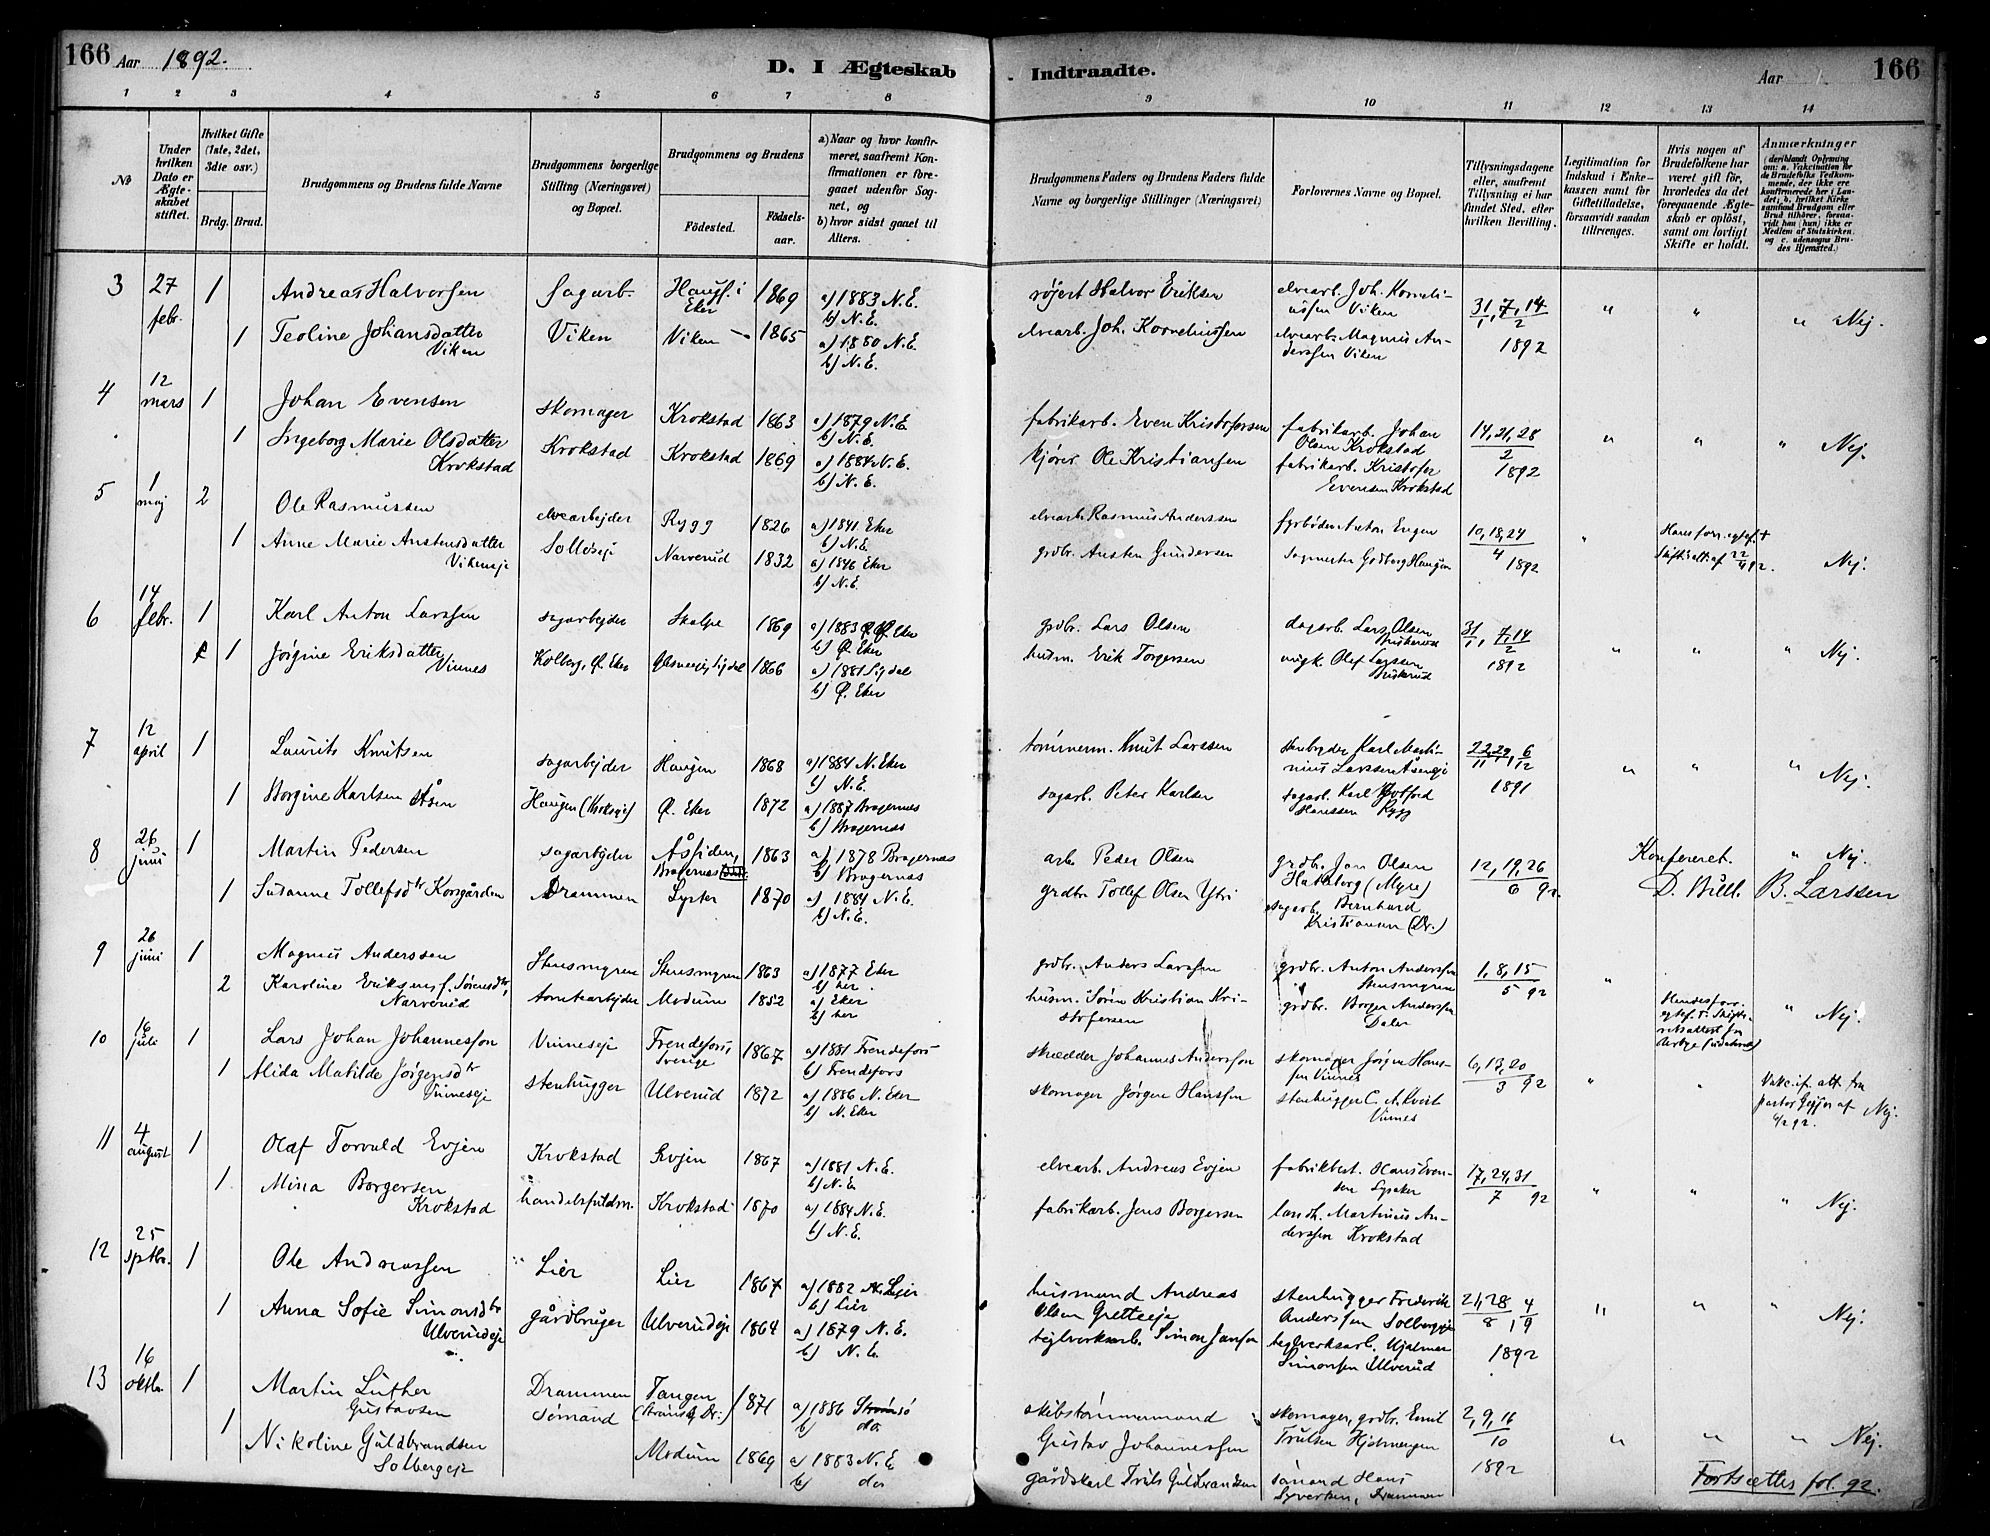 166 Aar 1892.
D. I Ægteskab Indtraadte.
Aar 1 166
1 2 3 4 5 6 7 8 9 10 11 12 13 14
No
Under hvilken Dato er Ægteskabet stiftet.
Hvilket Gifte (1ste, 2det, 3die osv.)
Brdg. Brud.
Brudgommens og Brudens fulde Navne
Brudgommens borgerlige Stilling (Næringsvei) og Bopæl.
Brudgommens og Brudens
Fødested.
Födsels-aar.
a) Naar og hvor konfirmeret, saafremt Konfirmationen er foregaaet udenfor Sognet, og
b) hvor sidst gaaet til Alters.
Brudgommens Faders og Brudens Faders fulde Navne og borgerlige Stillinger (Næringsvei)
Forlovernes Navne og Bopæl.
Tillysningsdagene eller, saafremt Tillysning ei har fundet Sted, efter hvilken Bevilling.
Legitimation for Indskud i Enkekassen samt for Giftetilladelse, forsaavidt saadan tiltrænges.
Hvis nogen af Brudefolkene har været gift før, hvorledes da det foregaaende Ægteskab er opløst, samt om lovligt Skifte er holdt.
Anmærkninger
3 27 febr. 1 Andreas Halvorsen sagarb. Haugs. i Eker 1869 a) 1883 N.E. b) N.E. Halvor Eriksen elvearb. Joh. Korneliussen Viken 31/1, 7, 14/2 1892 " " " Nej.
1 Teoline Johansdatter Viken Viken Viken 1865 a) 1880 N.E. b) N.E. elvearb. Joh. Korneliussen elvearb. Magnus Anderssen Viken
4 12 mars 1 Johan Evensen skomager Krokstad 1863 a) 1879 N.E. b) N.E. fabrikarb. Even Kristofersen fabrikarb. Johan Olsen Krokstad 14, 21, 28/2 1892 " " " Nej.
1 Ingeborg Marie Olsdatter Krokstad Krokstad Krokstad 1869 a) 1884 N.E. b) N.E. kjører Ole Kristiansen fabrikarb. Kristofer Evensen Krokstad
5 1 maj 2 Ole Rasmussen elvearbejder Rygg 1826 a) 1841 Eker b) N.E. elvearb. Rasmus Anderssen fyrbøder Anton Engen 10, 18, 24/4 1892 " Nej.
1 Anne Marie Anstensdatter Vikenseje Narverud 1832 a) 1846 Eker b) N.E. grdbr. Austen Gundersen sagmester Godberg Haugen
6 14 febr. 1 Karl Anton Larssen sagarbejder Skalpe 1869 a) 1883 Ø. Eker b) Ø. Eker grdbr. Lars Olsen dagarb. Lars Olsen 31/1, 7, 14/2 1892 " " " Nej.
1 Jørgine Eriksdatter Vinnes Kolberg, Ø. Eker 1866 a) 1881 Sigdal b) Ø. Eker husm. Erik Torgersen ungk. Olef Larssen
7 12 april 1 Laurits Knutsen sagarbejder Haugen 1868 a) 1884 N. Eker b) N.E. tømmerm. Knut Larssen stenbryder Karl Martinius Larssen Åseneje 22, 29/11, 6/12 1891 " " " Nej.
1 Borgine Karlsen Åsen Ø. Eker 1872 a) 1887 Bragernæs b) Bragernæs sagarb. Peter Karlsen sagarb. Karl Gotfred Hanssen Rygg
8 26 juni 1 Martin Pedersen sagarbejder Åssiden, Bragernæs 1863 a) 1878 Bragernæs b) Bragernæs arb. Peder Olsen grdbr. Jon Olsen Hakaberg (Myre) 12, 19, 26/6 92. Konfereret. " Nej.
1 Susanne Tollefsdtr Korsgården Drammen Lyster 1870 a) 1884 N.E. b) N.E. grdbr. Tollef Olsen Ytri sagarb. Bernhard Kristiansen (Dr.) D. Bull. B. Larssen
9 26 juni 1 Magnus Anderssen Stensmyren Stensmyren 1863 a) 1877 Eker b) her grdbr. Anders Larssen grdbr. Anton Anderssen Stensmyren 1, 8, 15/5 92 " " Nej.
2 Karoline Eriksen f. Sørensdtr, Narverud tomtearbejder Modum 1852 a) Eker b) her husm. Søren Kristian Kristofersen grdbr. Borger Anderssen Daler
10 16 juli 1 Lars Johan Johannesson Vinneseje Frendefors Sverige 1867 a) 1881 Frendefors b) Frendefors skrædder Johannes Andersson skomager Jørgen Hanssen Vinnes 6, 13, 20/3 92 " "
1 Alida Matilde Jørgensdtr Vinneseje stenhugger Ulverud 1872 a) 1886 N. Eker b) N. Eker skomager Jørgen Hanssen stenhugger C. A. Kvist Vinnes Nej.
11 4 august 1 Olaf Torvald Evjen Krokstad Evjen 1867 a) 1881 N.E. b) N.E. elvearb. Andreas Evjen fabrikbest. Hans Evensen Lysaker 17, 24, 31/7 92 " " Nej.
1 Mina Borgersen Krokstad handelsfuldm. Krokstad 1870 a) 1884 N.E. b) N.E. fabrikarb. Jens Borgersen landh. Martinius Anderssen Krokstad
12 25 sptbr. 1 Ole Andreassen Lier Lier 1867 a) 1882 Lier b) Lier husmand Andreas Olsen Gretteeje stenhugger Frederik Anderssen Solbergeje 21, 28/8, 4/9 1892 " " " Nej.
1 Anna Sofie Simonsdtr Ulverudeje gårdbruger Ulverudeje 1864 a) 1879 N.E. b) N.E. teglverksarb. Simon Jansen teglverksarb. Hjalmar Simonsen Ulverud
13 16 oktbr. 1 Martin Luther Gustavsen Drammen sømand Tangen (Strømsø, Dr.) 1871 a) 1886 Strømsø b) do. skibstømmermand Gustav Johannessen skomager, grdbr. Emil Trulsen Hjelmengen 2, 9, 16/10 1892 " " " Nej.
1 Nikoline Guldbrandsen Solbergeje Modum 1869 a) 1883 N.E. b) do gårdskarl Truls Guldbrandsen sømand Hans Syversen, Drammen
Fortsættes fol. 92.